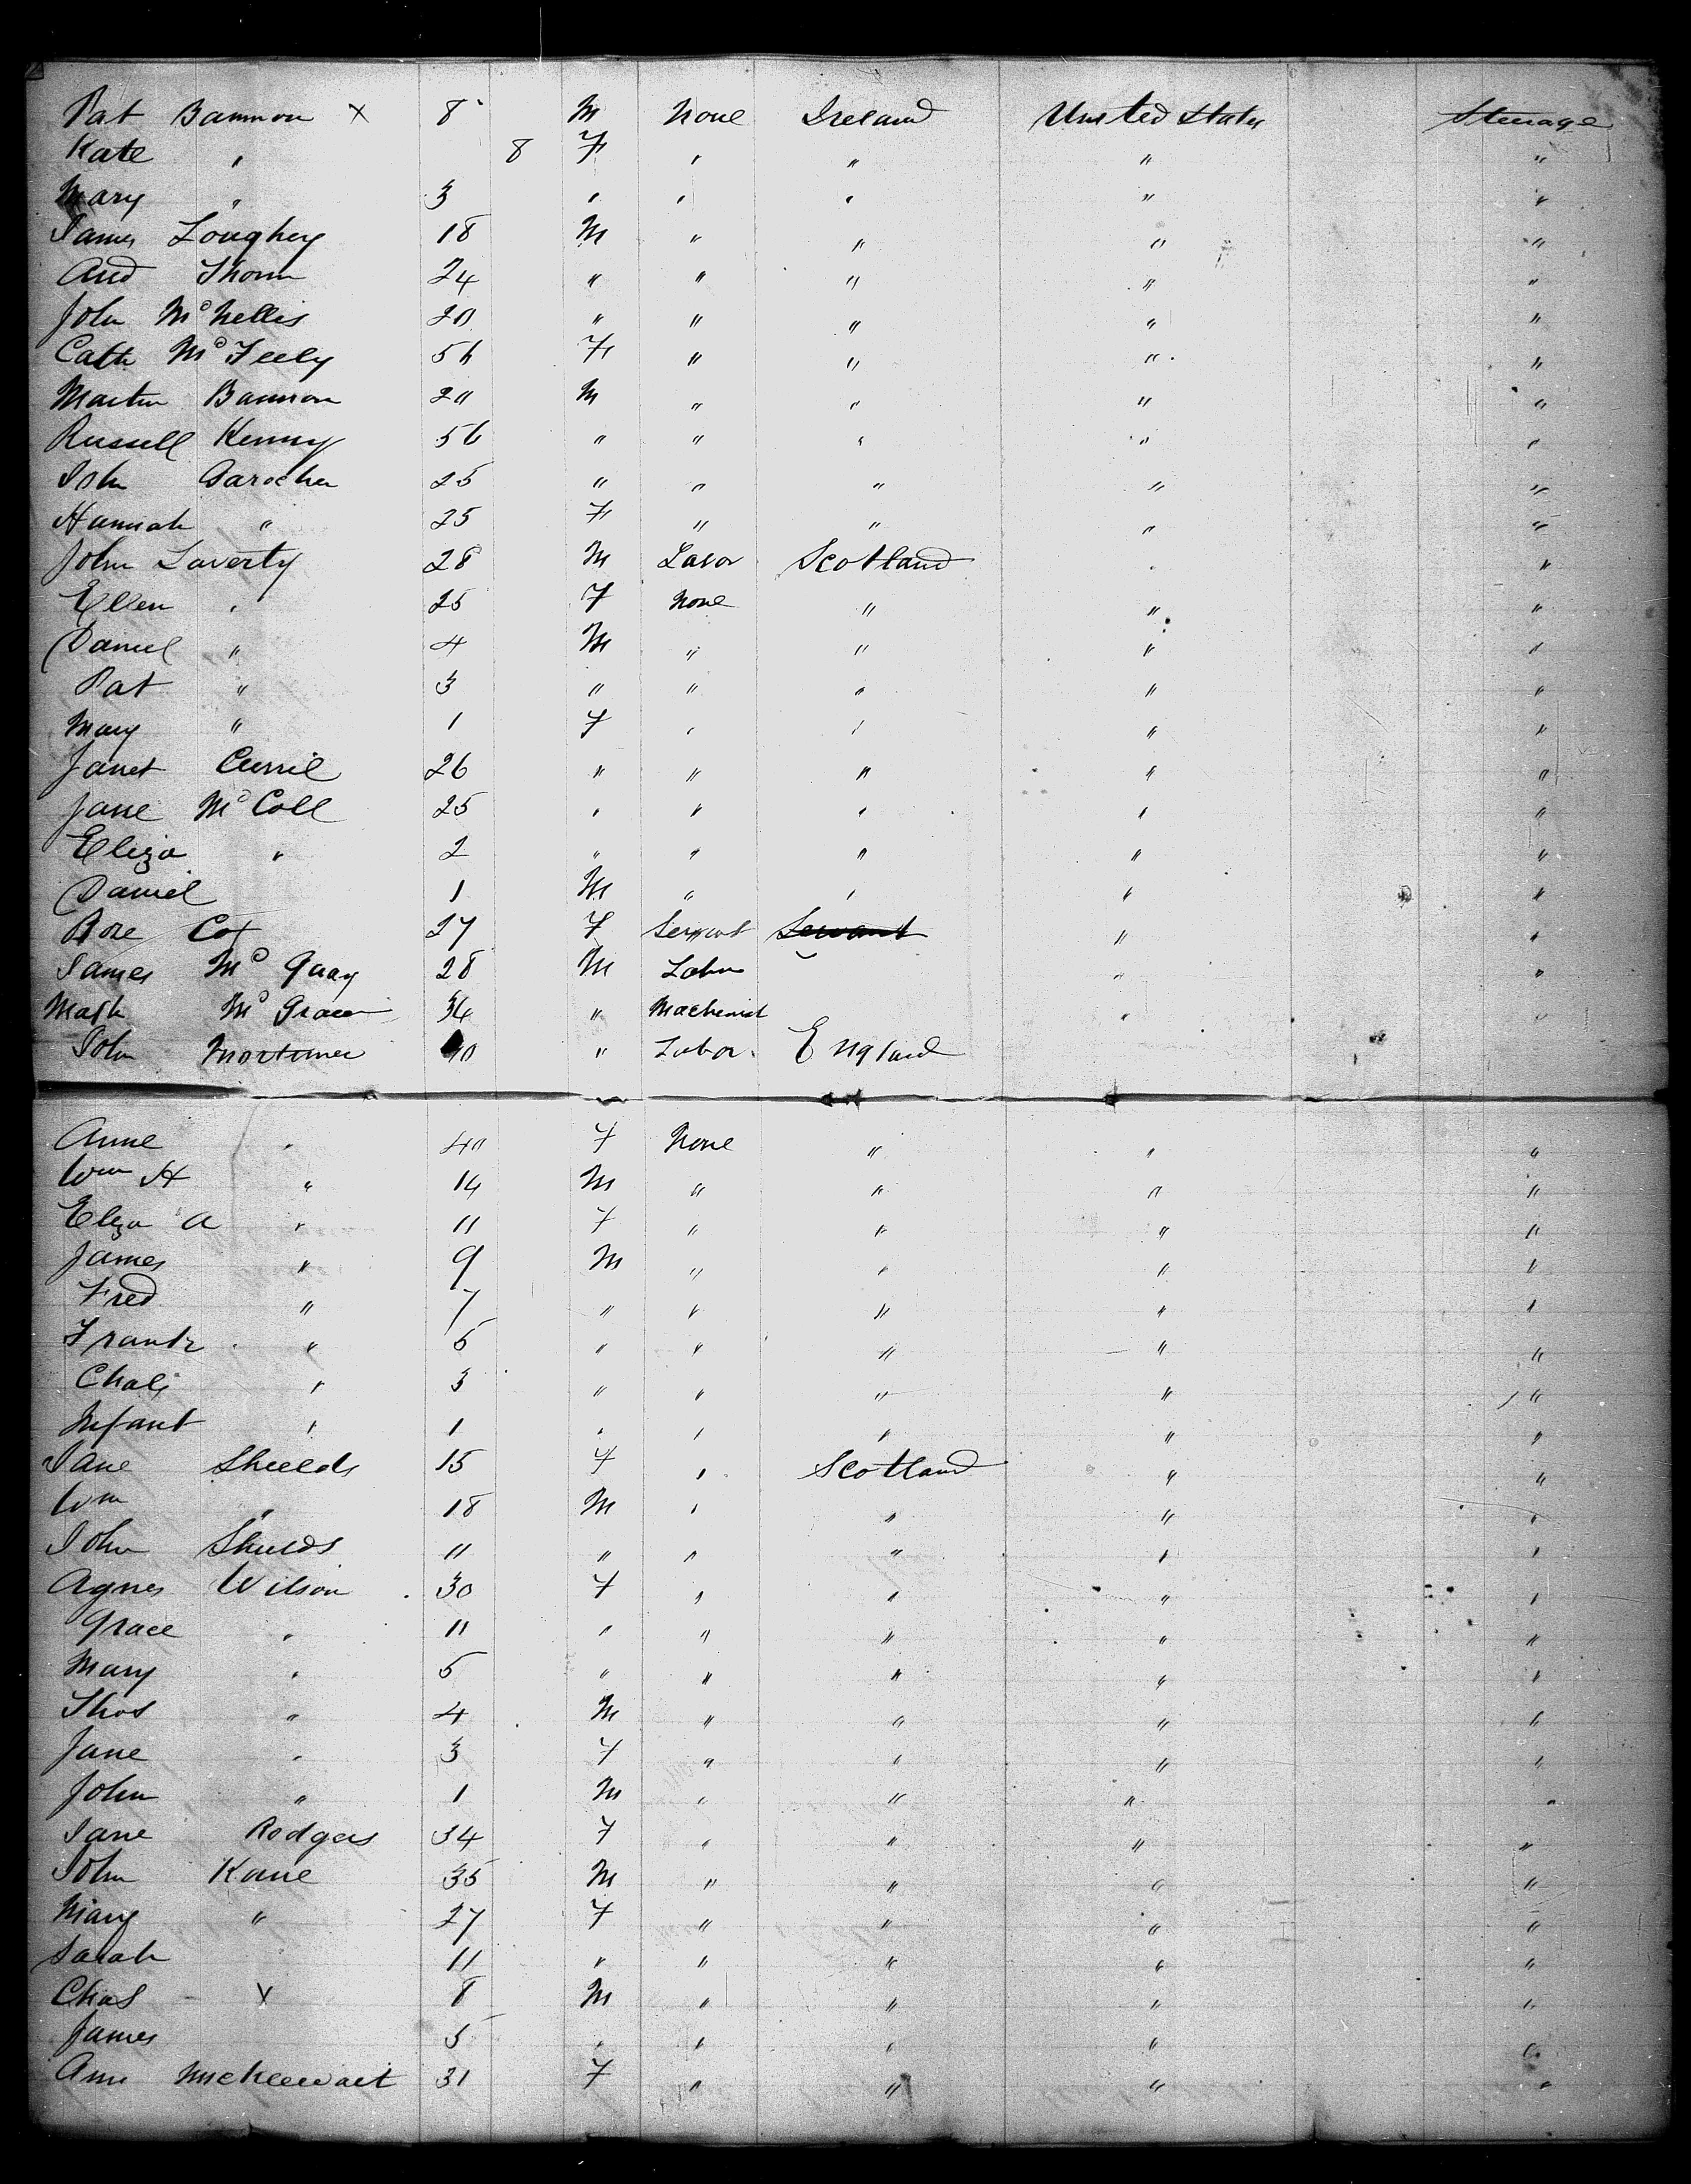 Pat Bannon X 8 M None Ireland United States Steerage
Kate " 8 F " " " "
Mary " 3 " " " " "
James Loughery 18 M " " " "
And Thom 24 " " " " "
John McNellis 20 " " " " "
Cath McFeely 56 F " " " "
Martin Bannon 20 M " " " "
Russell Kenny 56 " " " " "
John Garocher 25 " " " " "
Hannah " 25 F " " " "
John Laverty 28 M Labor Scotland " "
Ellen " 25 F None " " "
Daniel " 4 M " " " "
Pat " 3 " " " " "
Mary " 1 F " " " "
Janet Currie 26 " " " " "
Jane McColl 25 " " " " "
Eliza " 2 " " " " "
Daniel 1 M " " " "
Rose Cox 27 F Servant Servant " "
James McQuay 28 M Labor " "
McGraw 34 " Machinist " "
John Mortimer 40 " Labor England
Anne " 40 F None " " "
Wm H " 14 M " " " "
Eliza A " 11 F " " " "
James " 9 M " " " "
Fred " 7 " " " " "
Frank " 5 " " " " "
Chas " 3 " " " " "
Infant " 1 " " " " "
Jane Shields 15 F " Scotland " "
Wm " 18 M " " " "
John Shields 11 " " " " "
Agnes Wilson 30 F " " " "
Grace " 11 " " " " "
Mary " 5 " " " " "
Thos " 4 M " " " "
Jane " 3 F " " " "
John " 1 M " " " "
Jane Rodgers 34 F " " " "
John Kane 35 M " " " "
Mary " 27 F " " " "
Sarah 11 " " " " "
Chas X 8 M " " " "
James 5 " " " " "
Ann 31 F " " " "